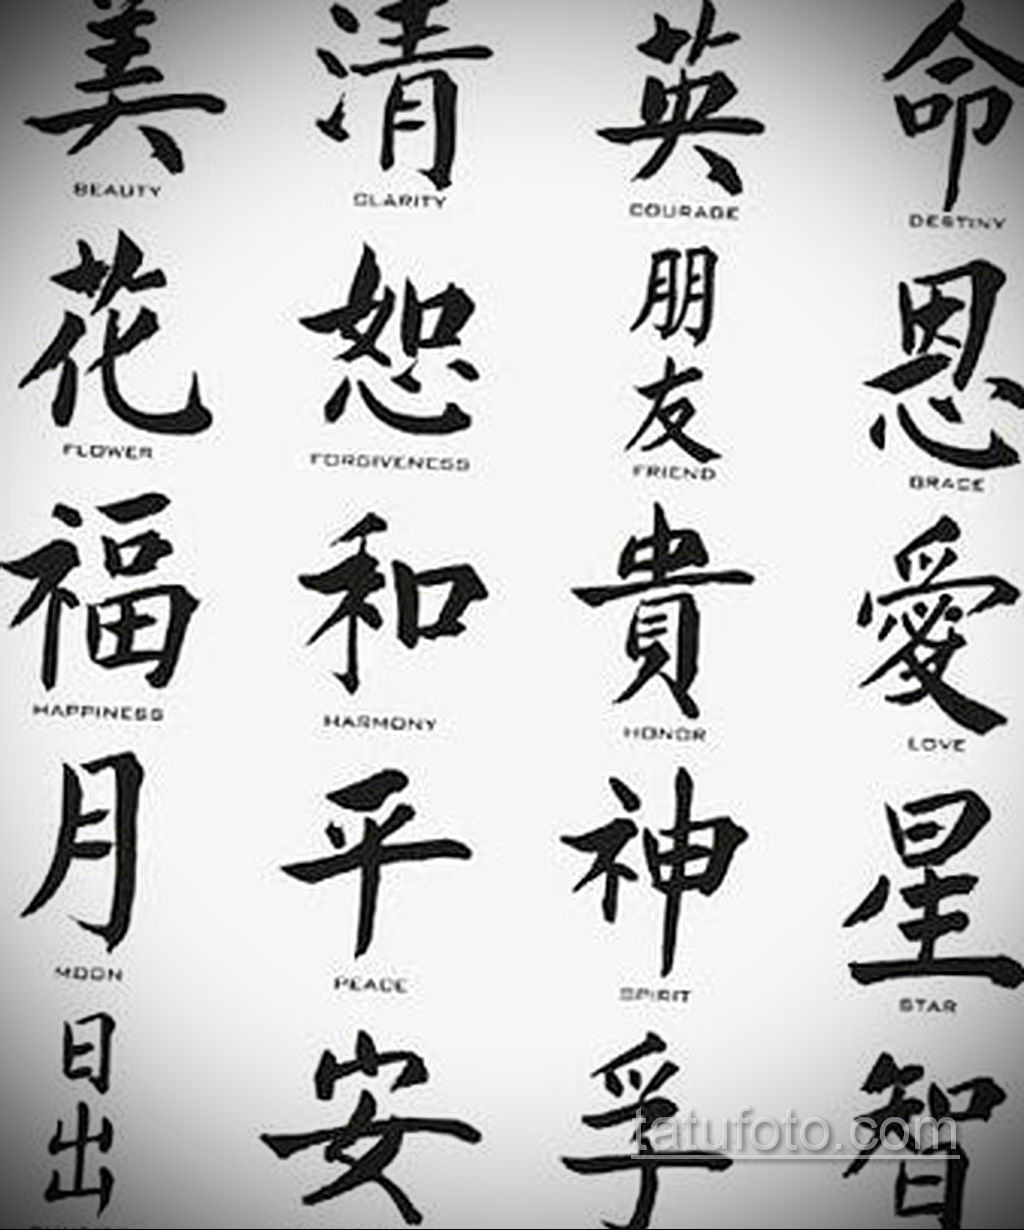 美 清 英 命
BEAUTY CLARITY COURAGE DESTINY
花 恕 朋友 恩
FLOWER FORGIVENESS FRIEND GRACE
福 和 貴 愛
HAPPINESS HARMONY HONOR LOVE
月 平 神 星
MOON PEACE SPIRIT STAR
日出 安 孚 智
tatufoto.com